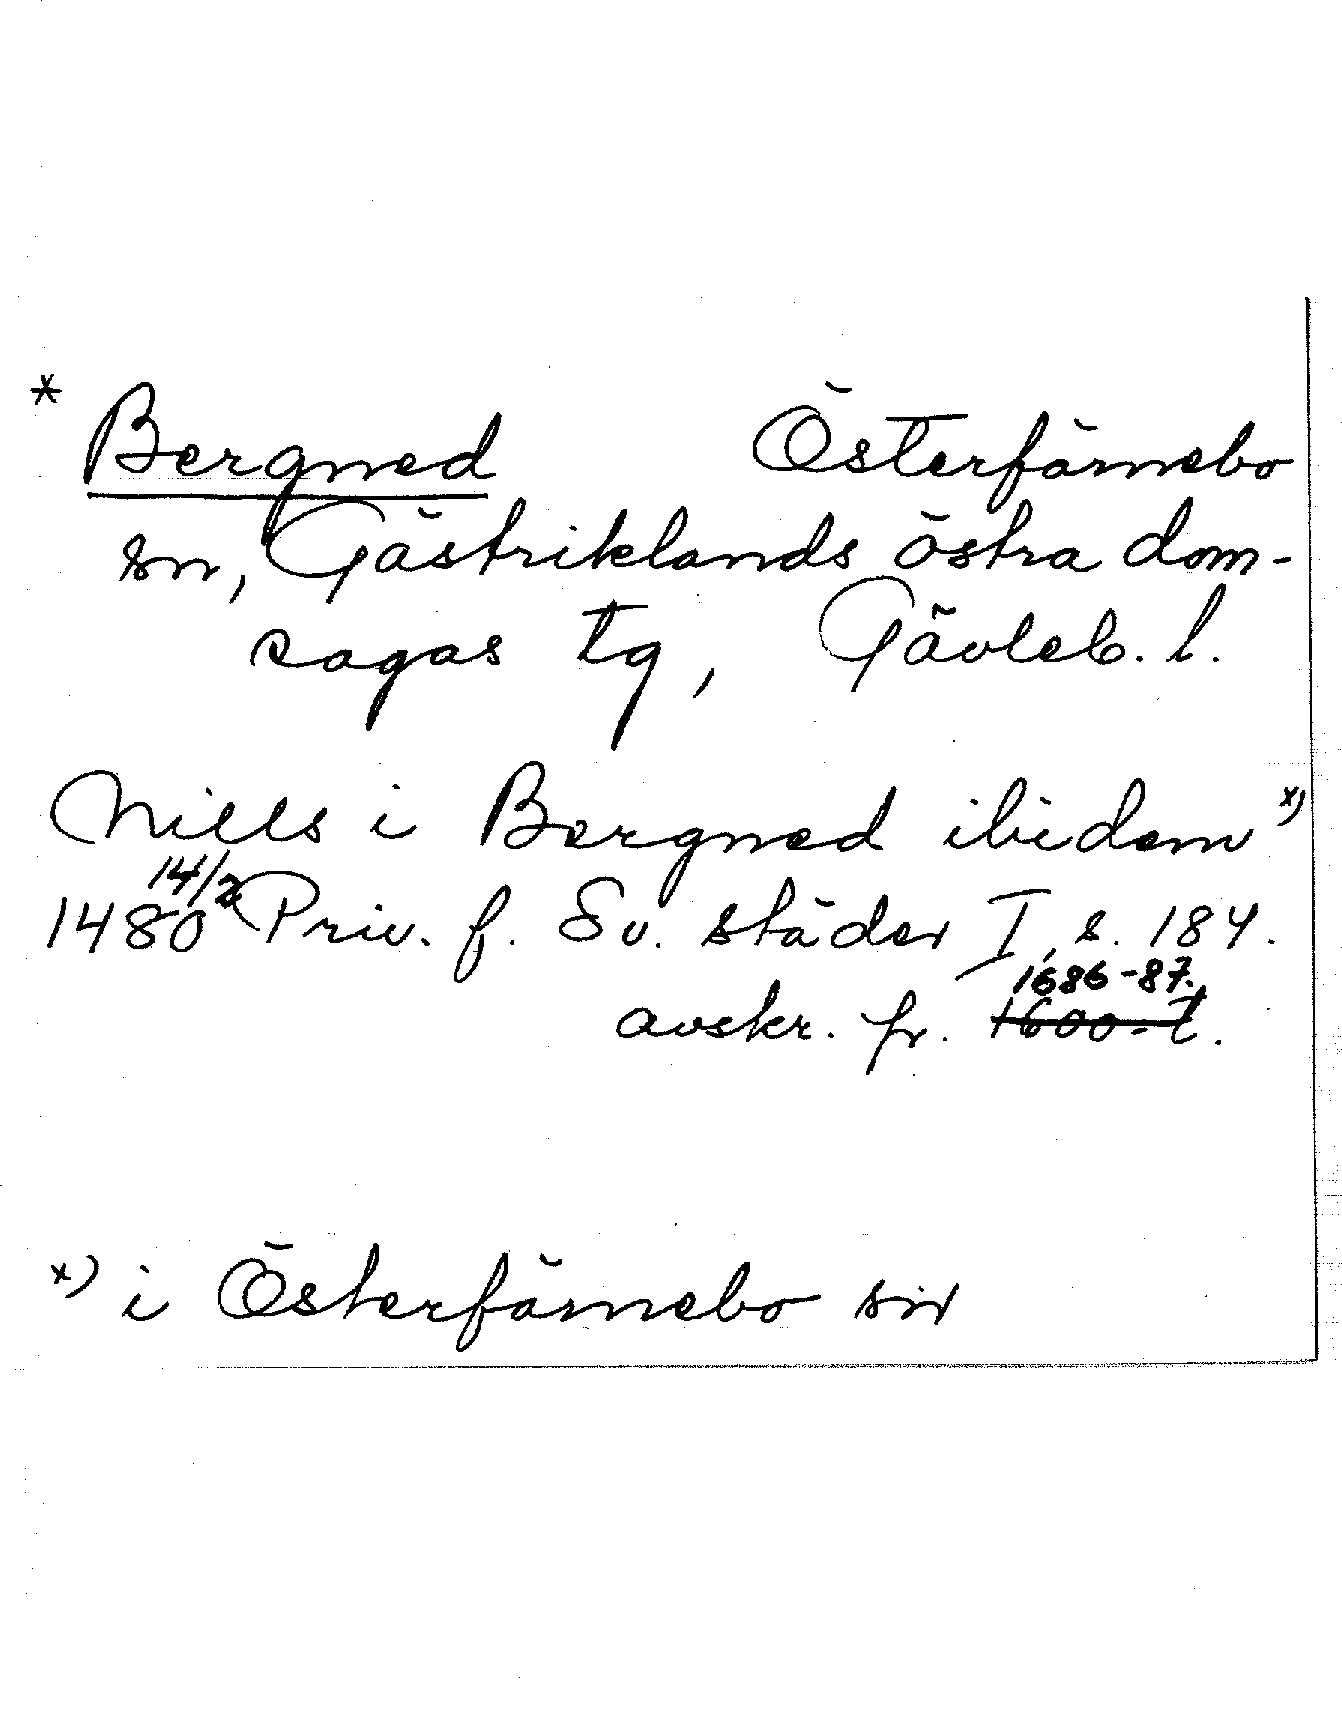 * Bergned Österfärnebo
sn, Gästriklands östra dom-
sagas tg, Gävleb. l.
Niells i Bergned ibidem x)
1480 14/2 Priv. f. Sv. städer I, s. 184.
1686-87.
avskr. fr. 1600-t.
x) i Österfärnebo sn